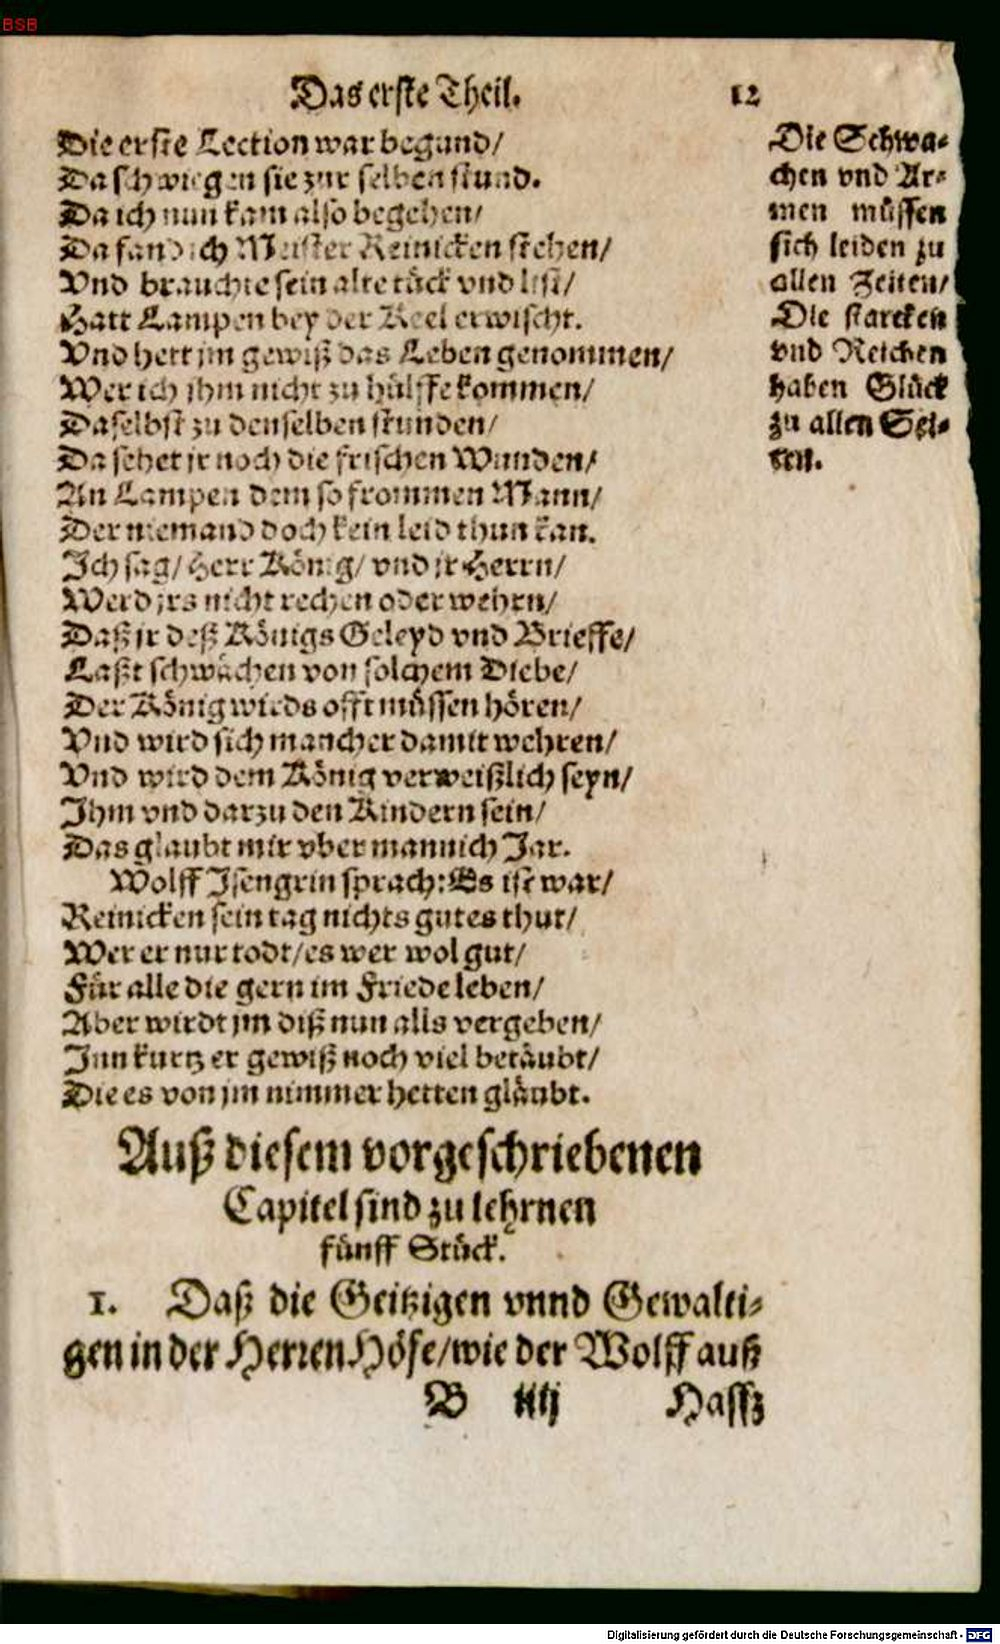 BSB
Das erste Theil. 12
Die erste Lection war begund/
Da schwiegen sie zur selben stund.
Da ich nun kam also begehen/
Da fand ich Meister Reinicken stehen/
Vnd brauchte sein alte tück vnd list/
Hatt Lampen bey der Keel erwischt.
Vnd hett jm gewiß das Leben genommen/
Wer ich jhm nicht zu hülffe kommen/
Daselbst zu denselben stunden/
Da sehet jr noch die frischen Wunden/
An Lampen dem so frommen Mann/
Der niemand doch kein leid thun kan.
Ich sag/ Herr König/ vnd jr Herrn/
Werd jrs nicht rechen oder wehrn/
Daß jr deß Königs Geleyd vnd Brieffe/
Laßt schwächen von solchem Diebe/
Der König wirds offt müssen hören/
Vnd wird sich mancher damit wehren/
Vnd wird dem König verweißlich seyn/
Ihm vnd darzu den Kindern sein/
Das glaubt mir vber mannich Jar.
Wolff Isengrin sprach: Es ist war/
Reinicken sein tag nichts gutes thut/
Wer er nur todt/ es wer wol gut/
Für alle die gern im Friede leben/
Aber wirdt jm diß nun alls vergeben/
Inn kurtz er gewiß noch viel betäubt/
Die es von jm nimmer hetten gläubt.
Die Schwa-
chen vnd Ar-
men müssen
sich leiden zu
allen Zeiten/
Die starcken
vnd Reichen
haben Glück
zu allen Sei-
ten.
Auß diesem vorgeschriebenen
Capitel sind zu lehrnen
fünff Stück.
1. Daß die Geitzigen vnnd Gewalti-
gen in der Herren Höfe/ wie der Wolff auß
B iiij Hassz
Digitalisierung gefördert durch die Deutsche Forschungsgemeinschaft - DFG